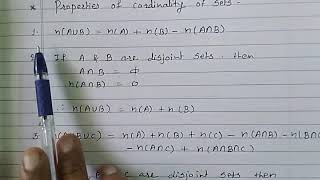 * Properties of cardinality of sets -
1. n(A∪B) = n(A) + n(B) - n(A∩B)
If A & B are disjoint sets, then
A∩B = ϕ
n(A∩B) = 0
∴ n(A∪B) = n(A) + n(B)
3. n(A∪B∪C) - n(A) + n(B) + n(C) - n(A∩B) - n(B∩
- n(A∩C) + n(A∩B∩C)
B c are disjoint sets then